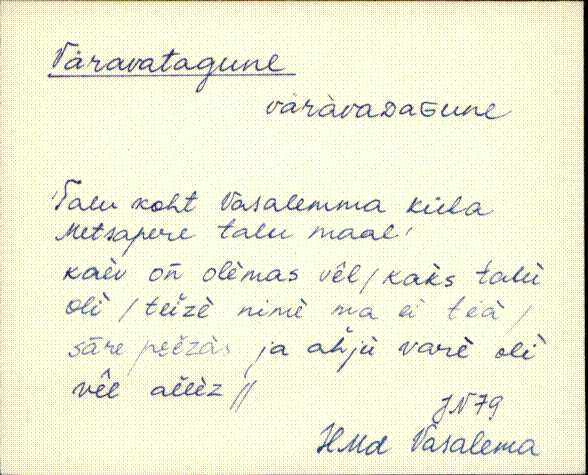 Väravatagune
väràvaDaGune
Talu koht Vasalemma küla
Metsapere talu maal.
kaèv on̄ olèmas vêl / kaks talù
olì / teìzè nimè ma ei teà /
sāre peèzàs ja ahjù varè olì
vêl allèz //
JN79
HMd Vasalema